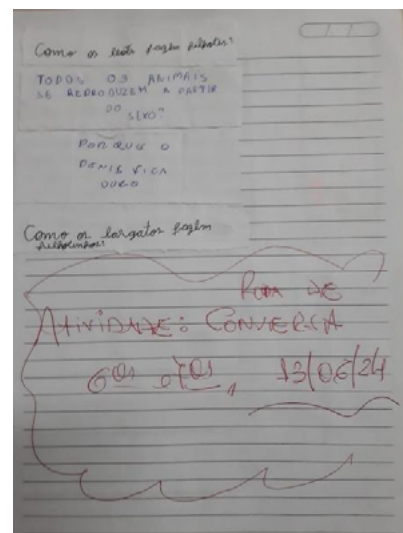 Como os leões fazem filhotes?
TODOS OS ANIMAIS
SE REPRODUZEM A PARTIR
DO
SEXO?
POR QUE O
PENIS FICA
DURO
Como os largatos fazem
filhotinhos?
RODA DE
ATIVIDADE: CONVERSA
6ºs e 7ºs, 13/06/24